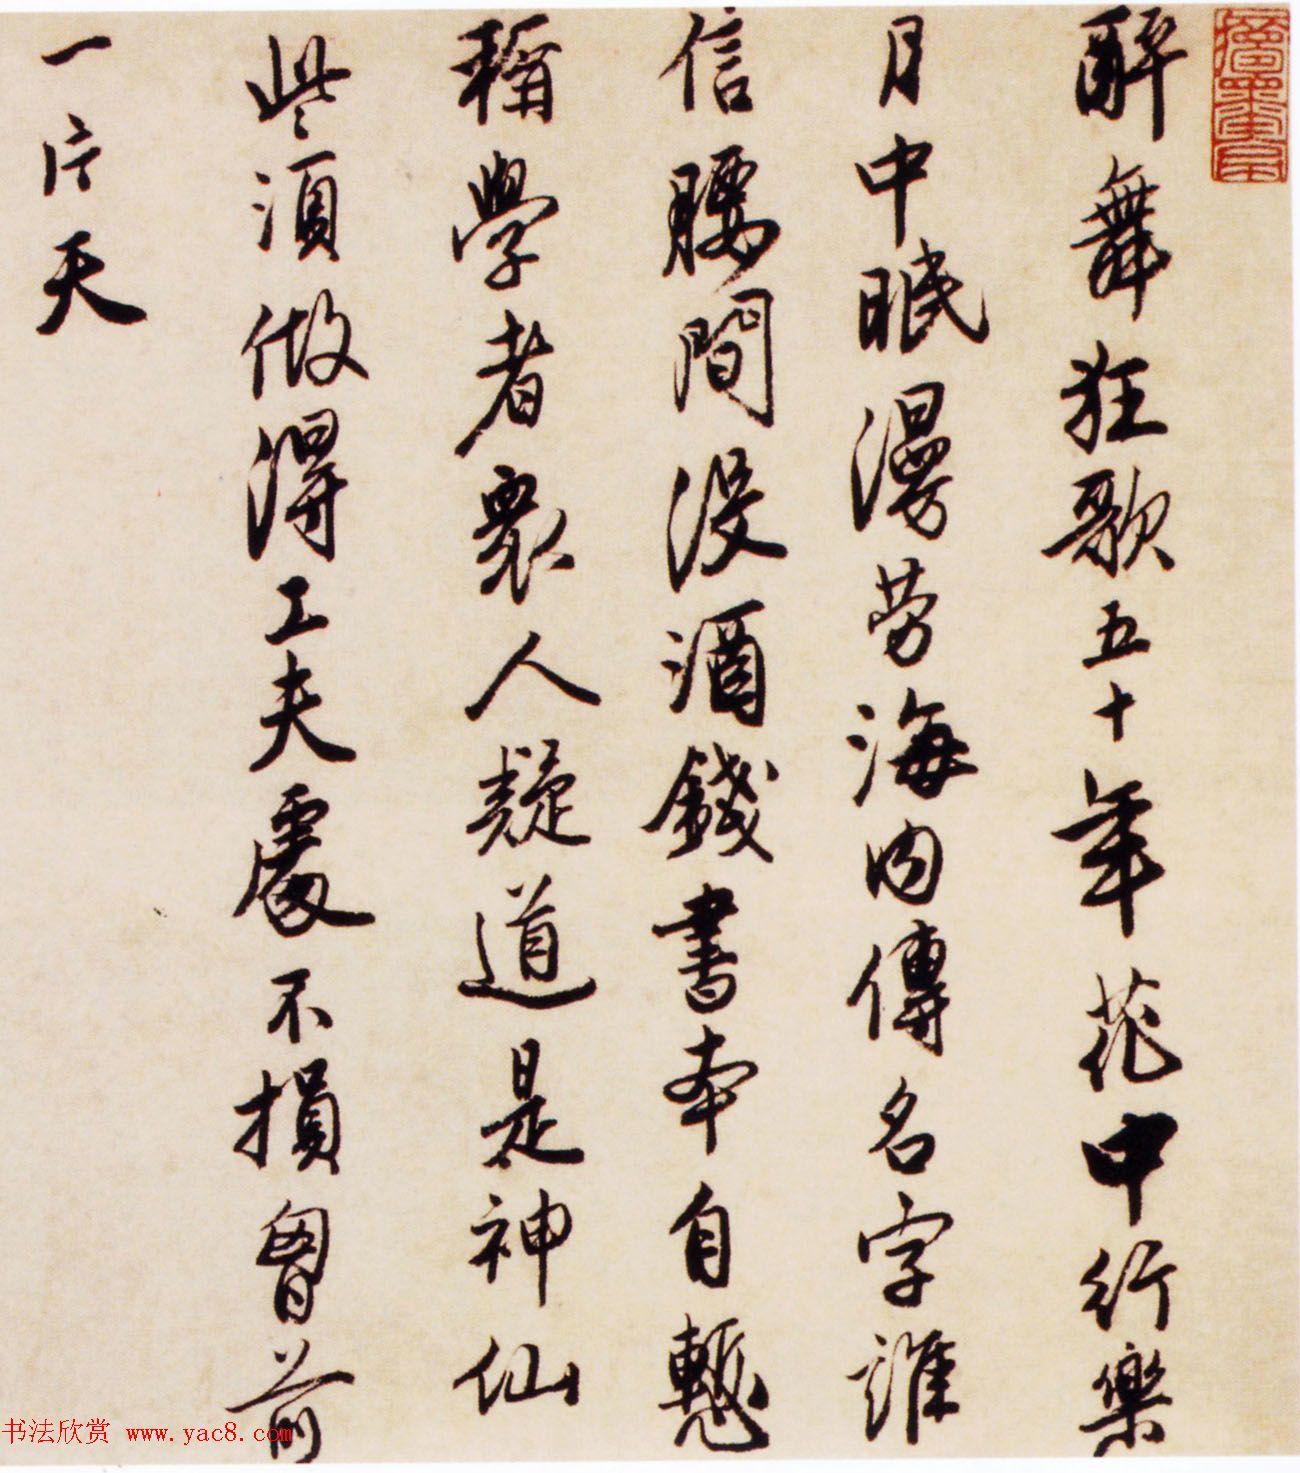 醉舞狂歌五十年花中行樂
月中眠漫劳海内傳名字誰
信腰間没酒錢書本自慙
稱學者衆人疑道是神仙
些須做得工夫處不損胷前
一片天
书法欣赏 www.yac8.com